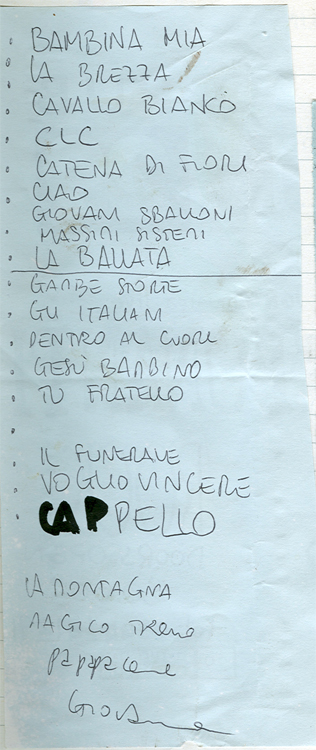 BAMBINA MIA
LA BREZZA
CAVALLO BIANCO
CLC
CATENA DI FIORI
CIAO
GIOVANI SBALLONI
MASSIMI SISTEMI
LA BALLATA
GAMBE STORTE
GLI ITALIANI
DENTRO AL CUORE
GESÙ BAMBINO
TU FRATELLO
IL FUNERALE
VOGLIO VINCERE
CAPPELLO
LA MONTAGNA
MAGICO TRENO